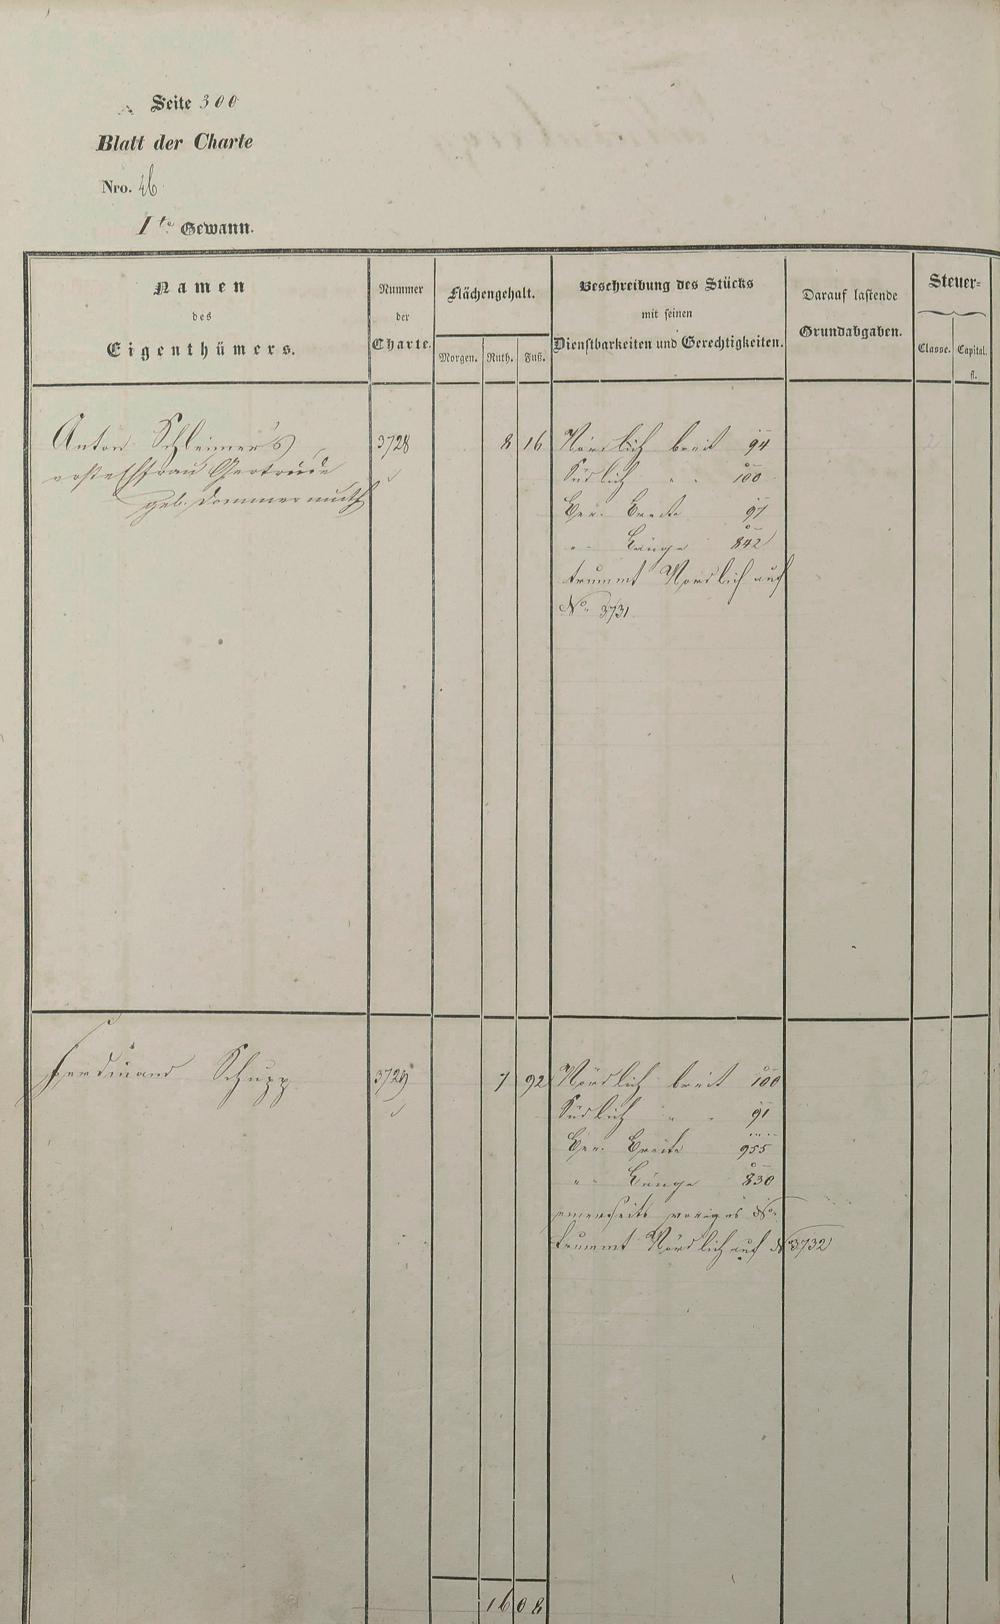 Seite 300
Blatt der Charte
Nro. 46
1te Gewann.
Namen
des
Eigenthümers.
Nummer
der
Charte.
Flächengehalt.
Morgen. Ruth. Fuß.
Beschreibung des Stücks
mit seinen
Dienstbarkeiten und Gerechtigkeiten.
Darauf lastende
Grundabgaben.
Steuer-
Classe. Capital.
fl.
Anton Schleimer's 3728 8 16 Nördlich breit 94
erste Ehfrau Gertrude Südlich " " 100
geb. Dommermuth Ger. Breite 97
" Länge 842
trummt Nördlich auf
No 3731
Ferdinand Schupp 3729 7 92 Nördlich breit 100 2
Südlich " " 91
Ger. Breite 955
" Länge 830
einerseits voriges No
trummt Nördlich auf No 3732
16 08